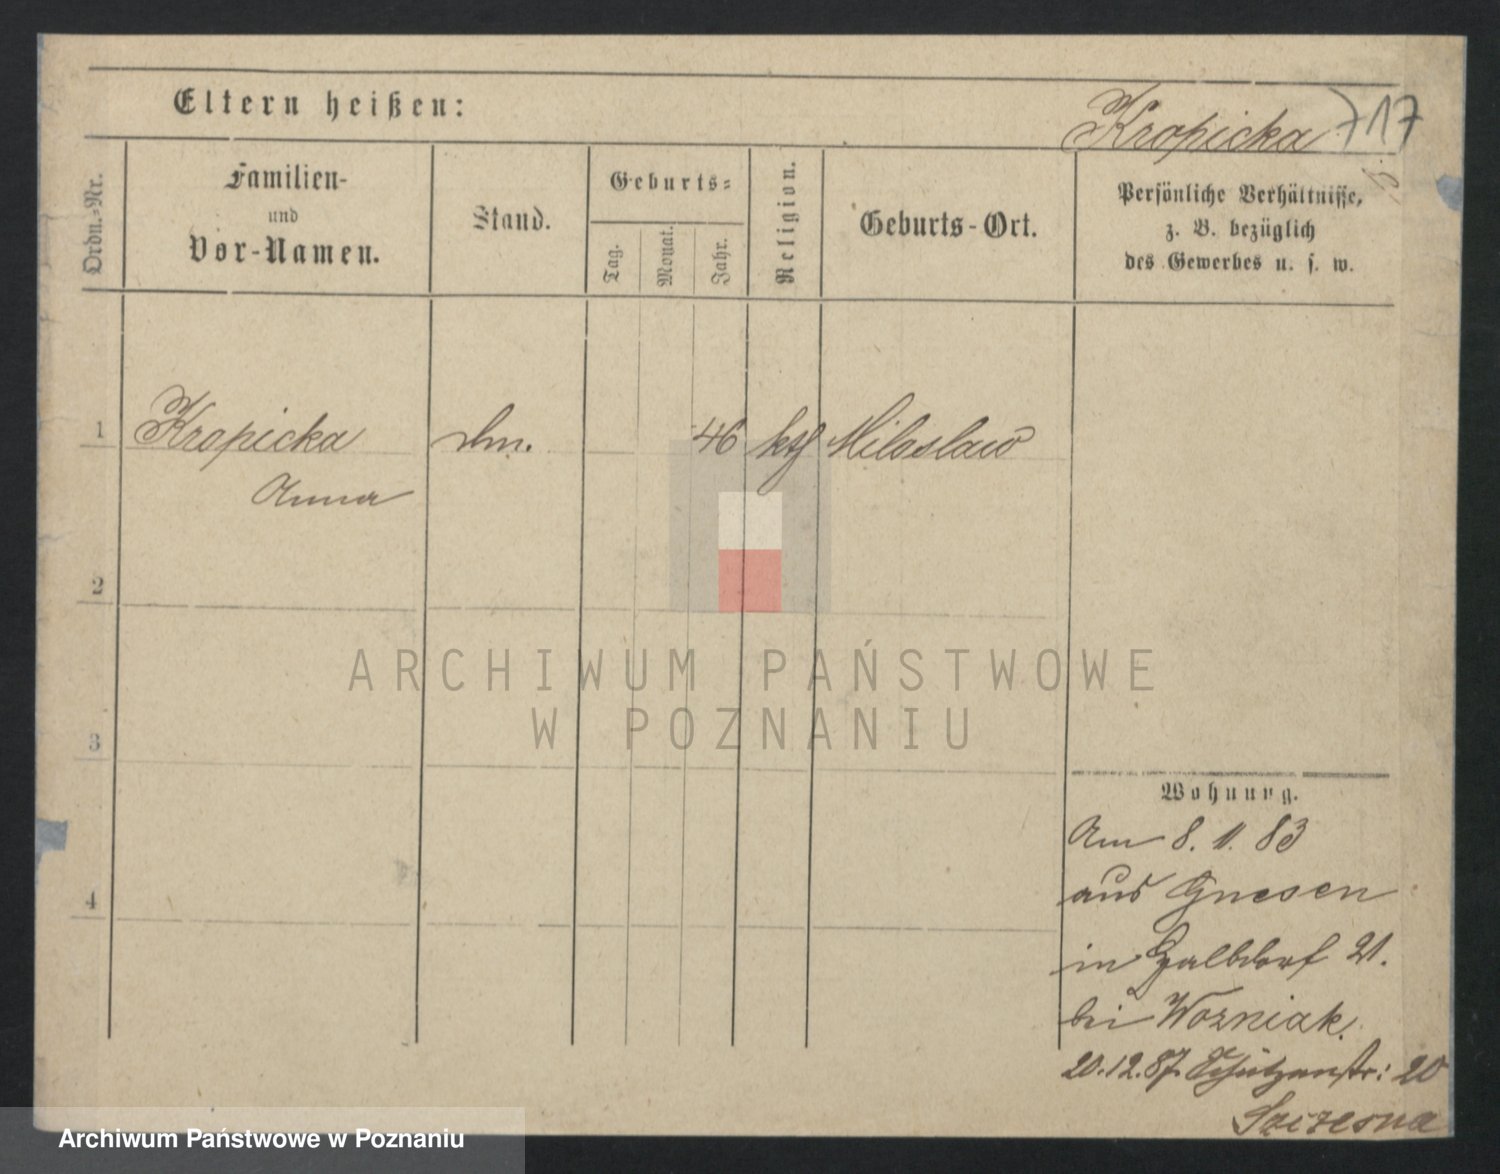 Eltern heißen:
Kropicka 717
Ordn.=Nr.
Familien-
und
Vor-Namen.
Stand.
Geburts=
Tag.
Monat.
Jahr.
Religion.
Geburts-Ort.
Persönliche Verhältnisse,
z. B. bezüglich
des Gewerbes u. s. w.
1 Kropicka 46 kth Miloslaw
Anna
2
3
4
Wohnung.
Am 8. 11. 83
aus Gnesen
in Halbdorf 21.
bei Wozniak.
20.12.87. Schützenstr: 20
Szczesna
ARCHIWUM PAŃSTWOWE
W POZNANIU
Archiwum Państwowe w Poznaniu